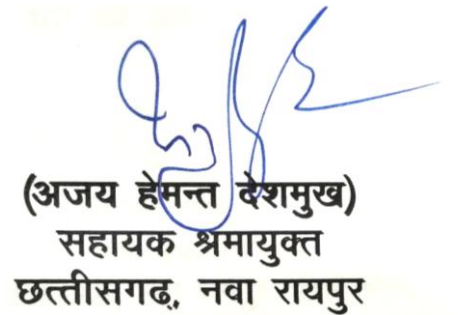 (अजय हेमन्त देशमुख)
सहायक श्रमायुक्त
छत्तीसगढ़, नवा रायपुर